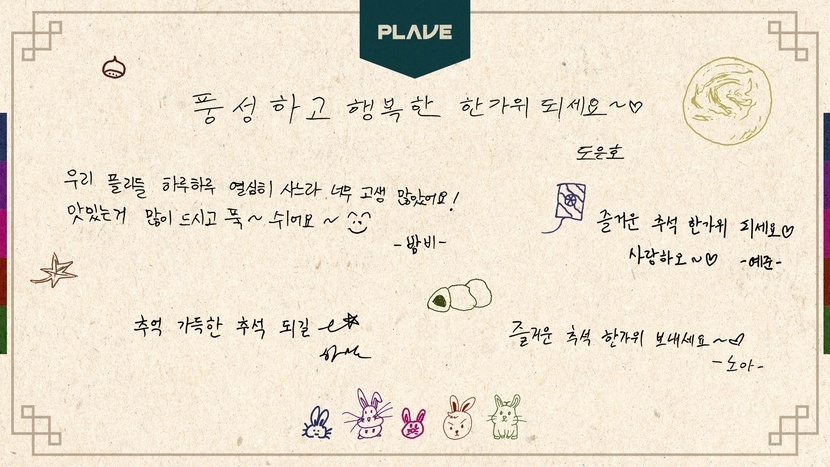 PLAVE
풍성하고 행복한 한가위 되세요~♡
도은호
우리 플리들 하루하루 열심히 사느라 너무 고생 많았어요!
맛있는거 많이 드시고 푹~ 쉬어요~
-밤비-
즐거운 추석 한가위 되세요♡
사랑하오~♡ -예준-
추억 가득한 추석 되길
하민
즐거운 추석 한가위 보내세요~♡
-노아-